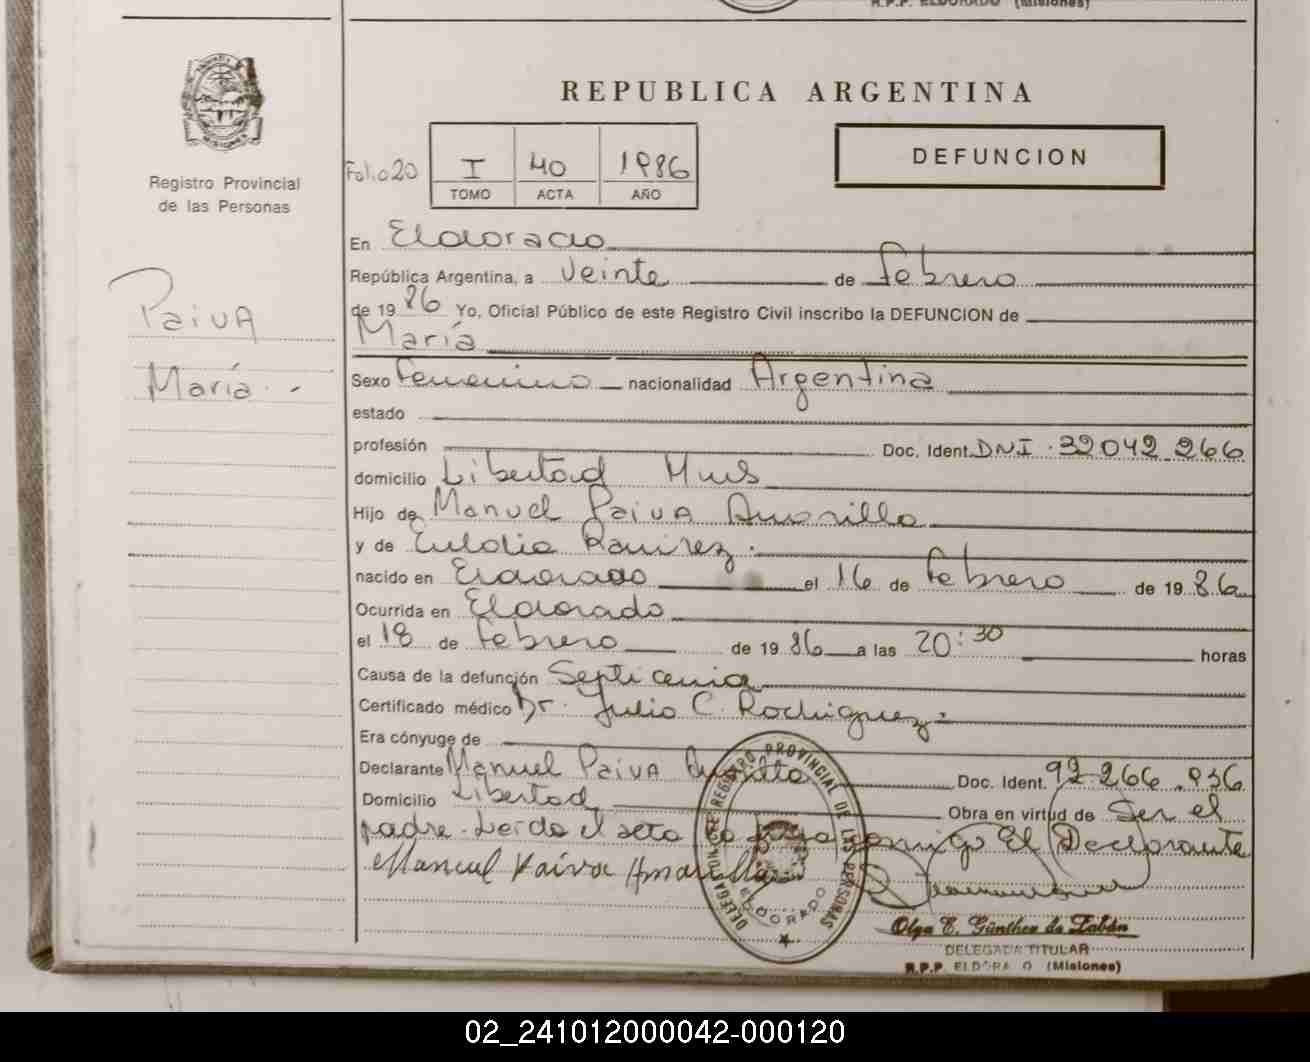 R.P.P. ELDORADO (Misiones)
MISIONES
Registro Provincial
de las Personas
REPUBLICA ARGENTINA
Folio 20
I 40 1986
TOMO ACTA AÑO
DEFUNCION
Paiva
María.-
En Eldorado
República Argentina, a Veinte de febrero
de 1986 Yo, Oficial Público de este Registro Civil inscribo la DEFUNCION de
María
Sexo Femenino nacionalidad Argentina
estado
profesión Doc. Ident. DNI. 32042.266
domicilio Libertad Mnes
Hijo de Manuel Paiva Amarilla
y de Eulalia Ramirez.
nacido en Eldorado el 16 de febrero de 1986
Ocurrida en Eldorado
el 18 de febrero de 1986 a las 20:30 horas
Causa de la defunción Septicemia
Certificado médico Dr. Julio C. Rodriguez.
Era cónyuge de
Declarante Manuel Paiva Amarilla Doc. Ident. 92.266.836
Domicilio Libertad Obra en virtud de Ser el
padre. Leída el acta la firma conmigo El Declarante
Manuel Paiva Amarilla
DELEGACION DE REGISTRO PROVINCIAL DE LAS PERSONAS
ELDORADO
Olga E. Günther de Zabán
DELEGADA TITULAR
R.P.P. ELDORADO (Misiones)
02_241012000042-000120